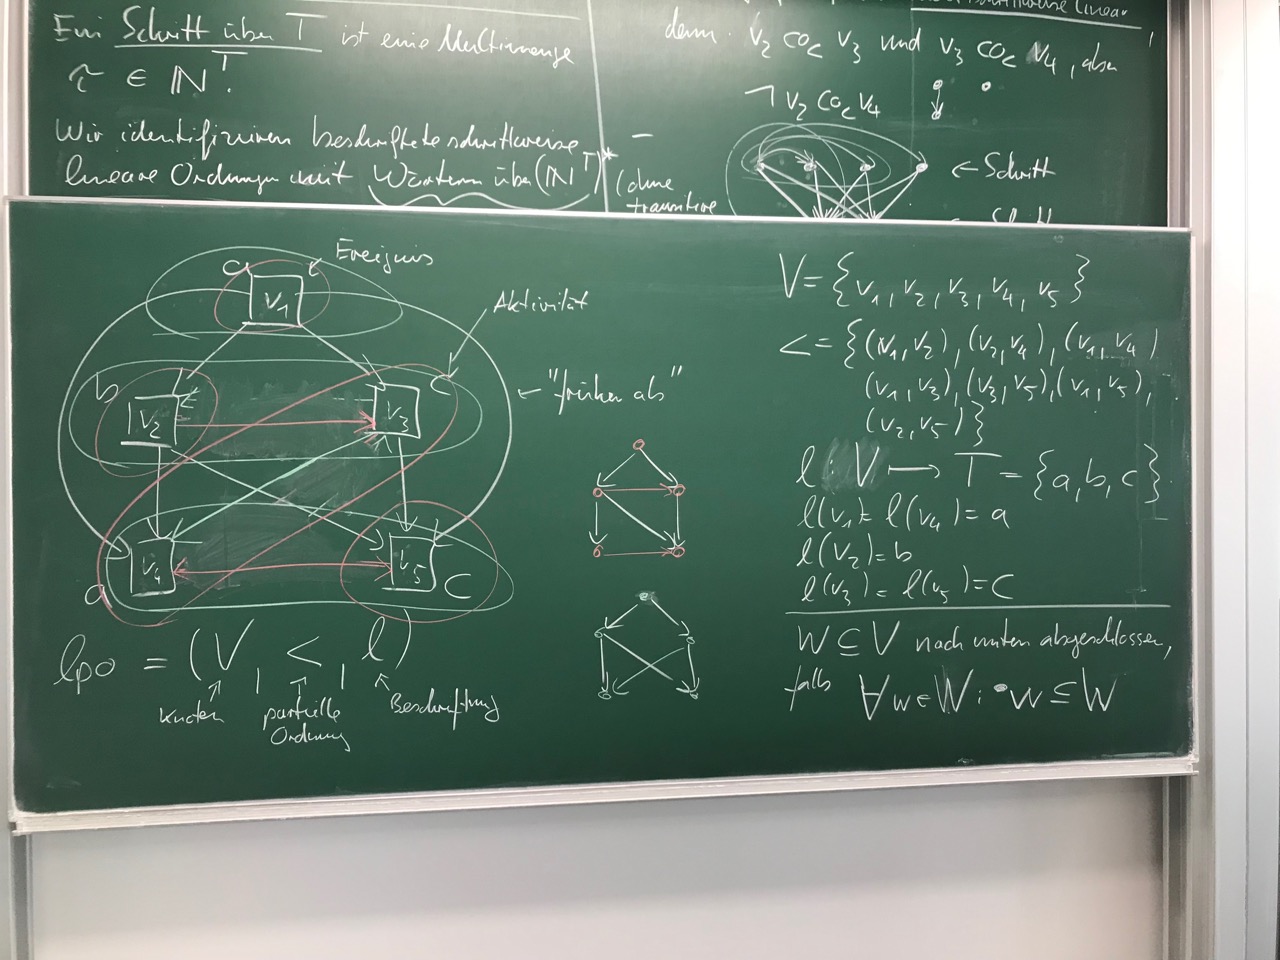 Ein Schritt über T ist eine Multimenge
τ ∈ ℕ^T.
Wir identifizieren beschriftete schrittweise
lineare Ordnungen mit Wörtern über (ℕ^T)*
(ohne
transitive
linear
denn v₂ co_< v₃ und v₃ co_< v₄, aber
¬ v₂ co_< v₄
← Schritt
Ereignis
a
v₁
Aktivität
b
v₂
c
v₃
← "früher als"
a
v₄
v₅
c
lpo = (V, <, l)
Knoten
partielle
Ordnung
Beschriftung
V = {v₁, v₂, v₃, v₄, v₅}
< = {(v₁,v₂), (v₂,v₄), (v₁,v₄)
(v₁,v₃), (v₃,v₅), (v₁,v₅),
(v₂,v₅)}
l : V ⟶ T = {a, b, c}
l(v₁) = l(v₄) = a
l(v₂) = b
l(v₃) = l(v₅) = c
W ⊆ V nach unten abgeschlossen,
falls ∀w∈W: •w ⊆ W